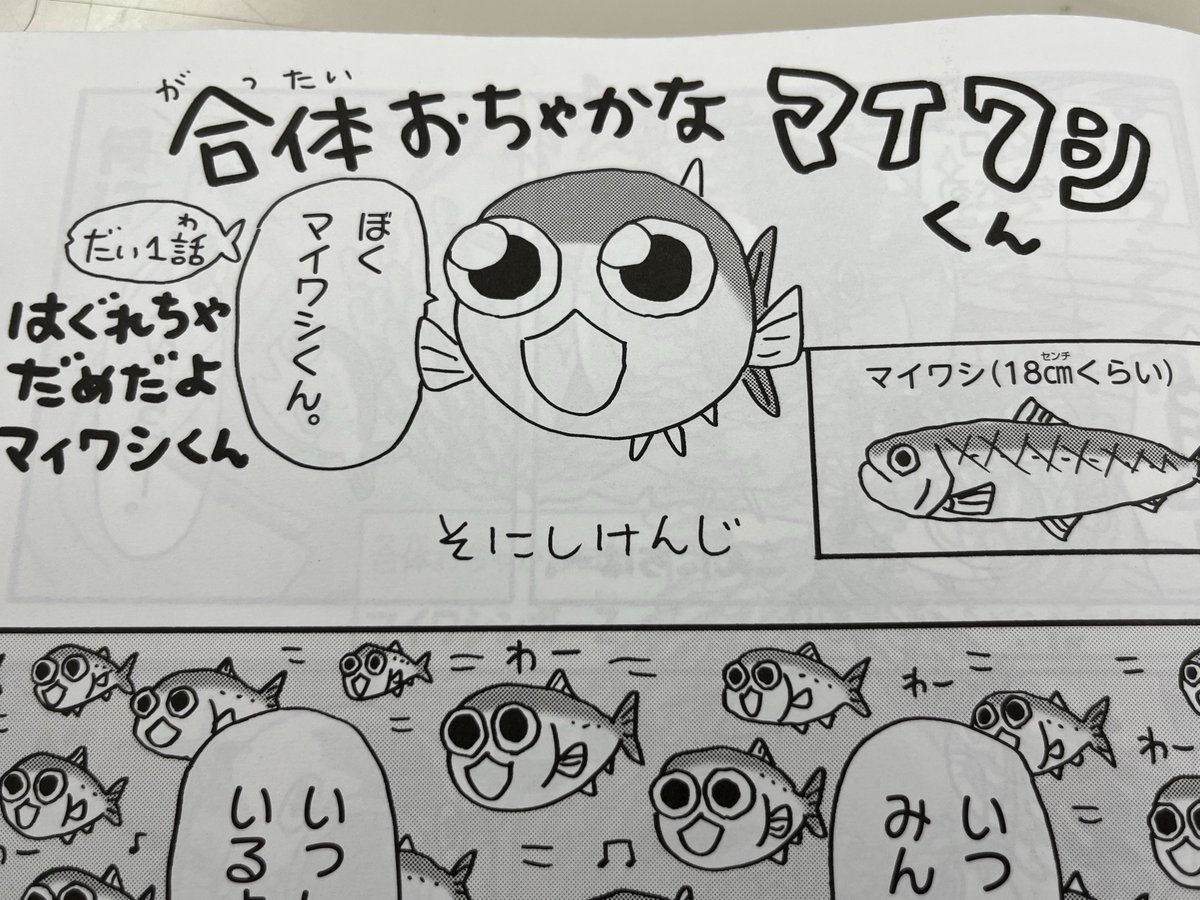 がったい
合体おちゃかな マイワシ
くん
わ
だい1話
はぐれちゃ
だめだよ
マイワシくん
ぼく
マイワシくん。
センチ
マイワシ(18㎝くらい)
そにしけんじ
わー
わー
わー
いつ
みん
いつ
いる